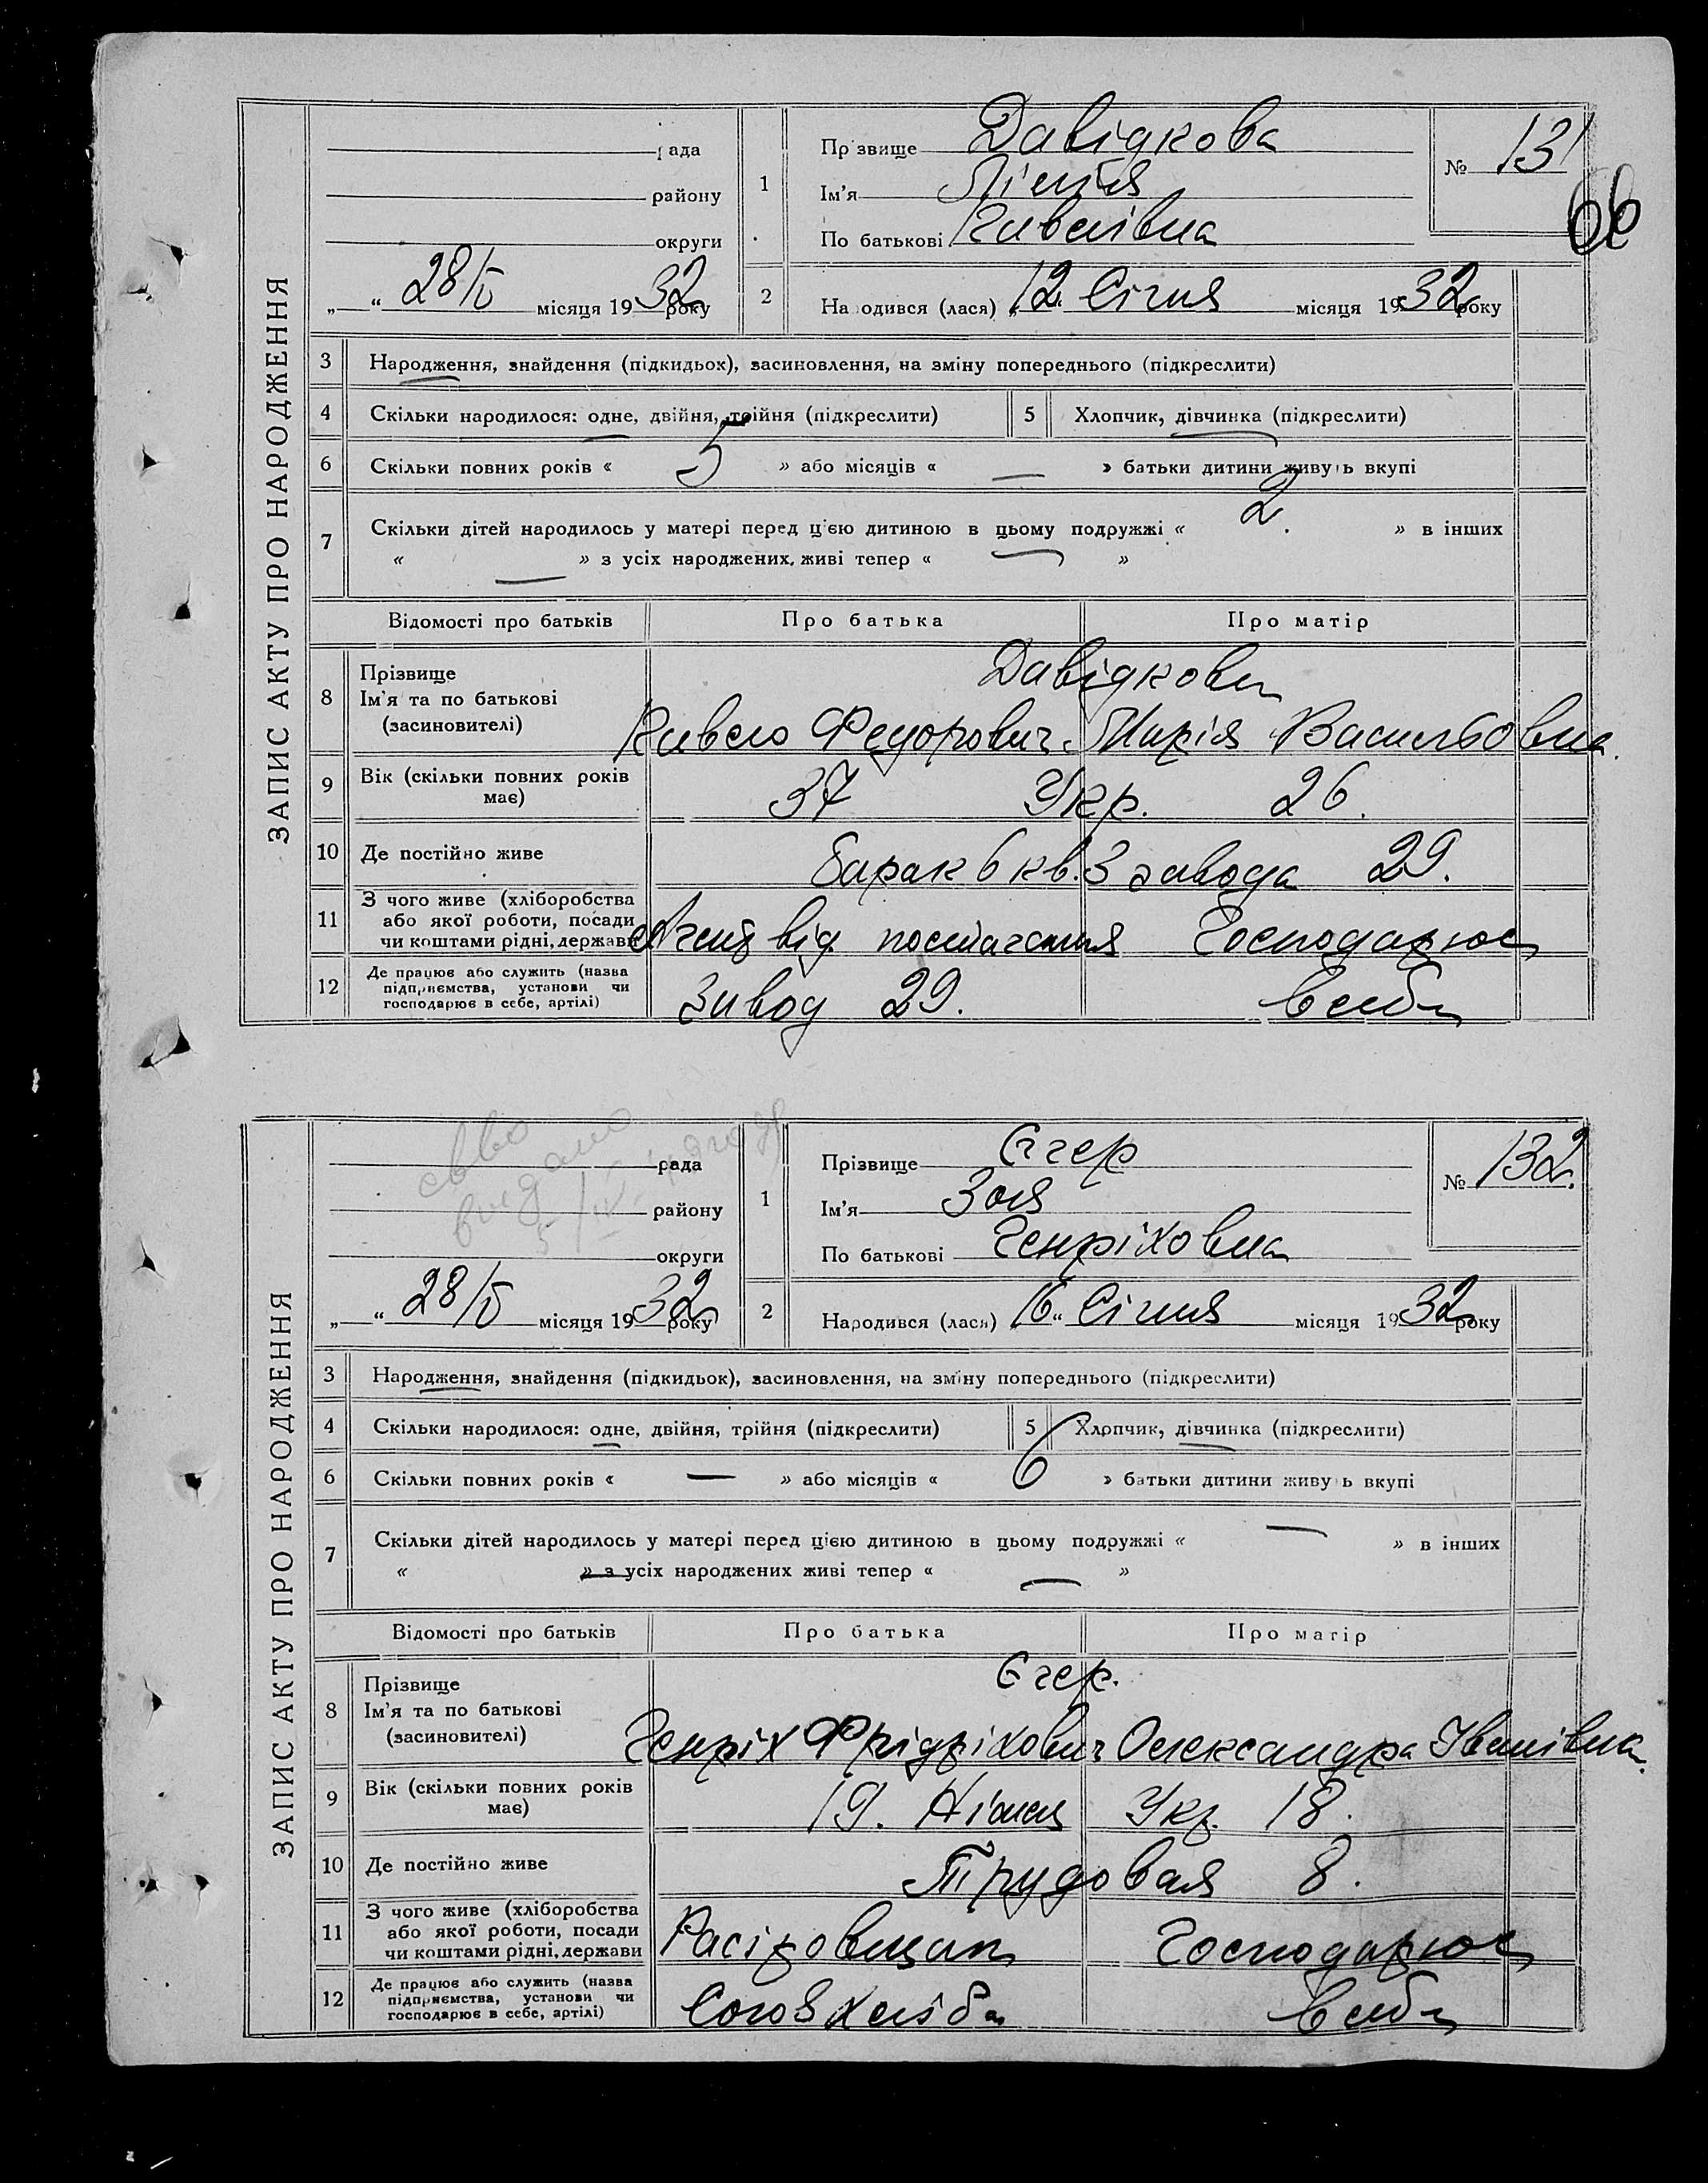 ЗАПИС АКТУ ПРО НАРОДЖЕННЯ
рада
району
округи
„ “ 28/V місяця 1932 року
1
Прізвище Давідкова
Ім'я
По батькові Павлівна
№ 131
66
2
Народився (лася) „12 Січня місяця 1932 року
3 Народження, знайдення (підкидьок), засиновлення, на зміну попереднього (підкреслити)
4 Скільки народилося: одне, двійня, трійня (підкреслити)
5 Хлопчик, дівчинка (підкреслити)
6 Скільки повних років « 5 » або місяців « — » батьки дитини живуть вкупі
7 Скільки дітей народилось у матері перед цією дитиною в цьому подружжі « 2. » в інших
« — » з усіх народжених, живі тепер « — »
Відомості про батьків Про батька Про матір
8 Прізвище
Ім'я та по батькові
(засиновителі)
Давідкови
Павло Федорович Марія Васильовна.
9 Вік (скільки повних років
має)
37 Укр. 26.
10 Де постійно живе барак 6 кв. 3 завода 29.
11 З чого живе (хліборобства
або якої роботи, посади
чи коштами рідні, держави
Агент від постачання Господарює
12 Де працює або служить (назва
підприємства, установи чи
господарює в себе, артілі)
Завод 29. в себе
ЗАПИС АКТУ ПРО НАРОДЖЕННЯ
рада
району
округи
видано
„ “ 28/V місяця 1932 року
1
Прізвище Єгер
Ім'я Зоя
По батькові Генріховна
№ 132.
2
Народився (лася) 16 “ Січня місяця 1932 року
3 Народження, знайдення (підкидьок), засиновлення, на зміну попереднього (підкреслити)
4 Скільки народилося: одне, двійня, трійня (підкреслити)
5 Хлопчик, дівчинка (підкреслити)
6 Скільки повних років « — » або місяців « 6 » батьки дитини живуть вкупі
7 Скільки дітей народилось у матері перед цією дитиною в цьому подружжі « — » в інших
« » з усіх народжених живі тепер « — »
Відомості про батьків Про батька Про матір
8 Прізвище
Ім'я та по батькові
(засиновителі)
Єгер.
Генріх Фрідріхович Олександра Іванівна.
9 Вік (скільки повних років
має)
19. Німец Укр. 18.
10 Де постійно живе Трудовая 8.
11 З чого живе (хліборобства
або якої роботи, посади
чи коштами рідні, держави
Господарює
12 Де працює або служить (назва
підприємства, установи чи
господарює в себе, артілі)
Союзхліб в себе